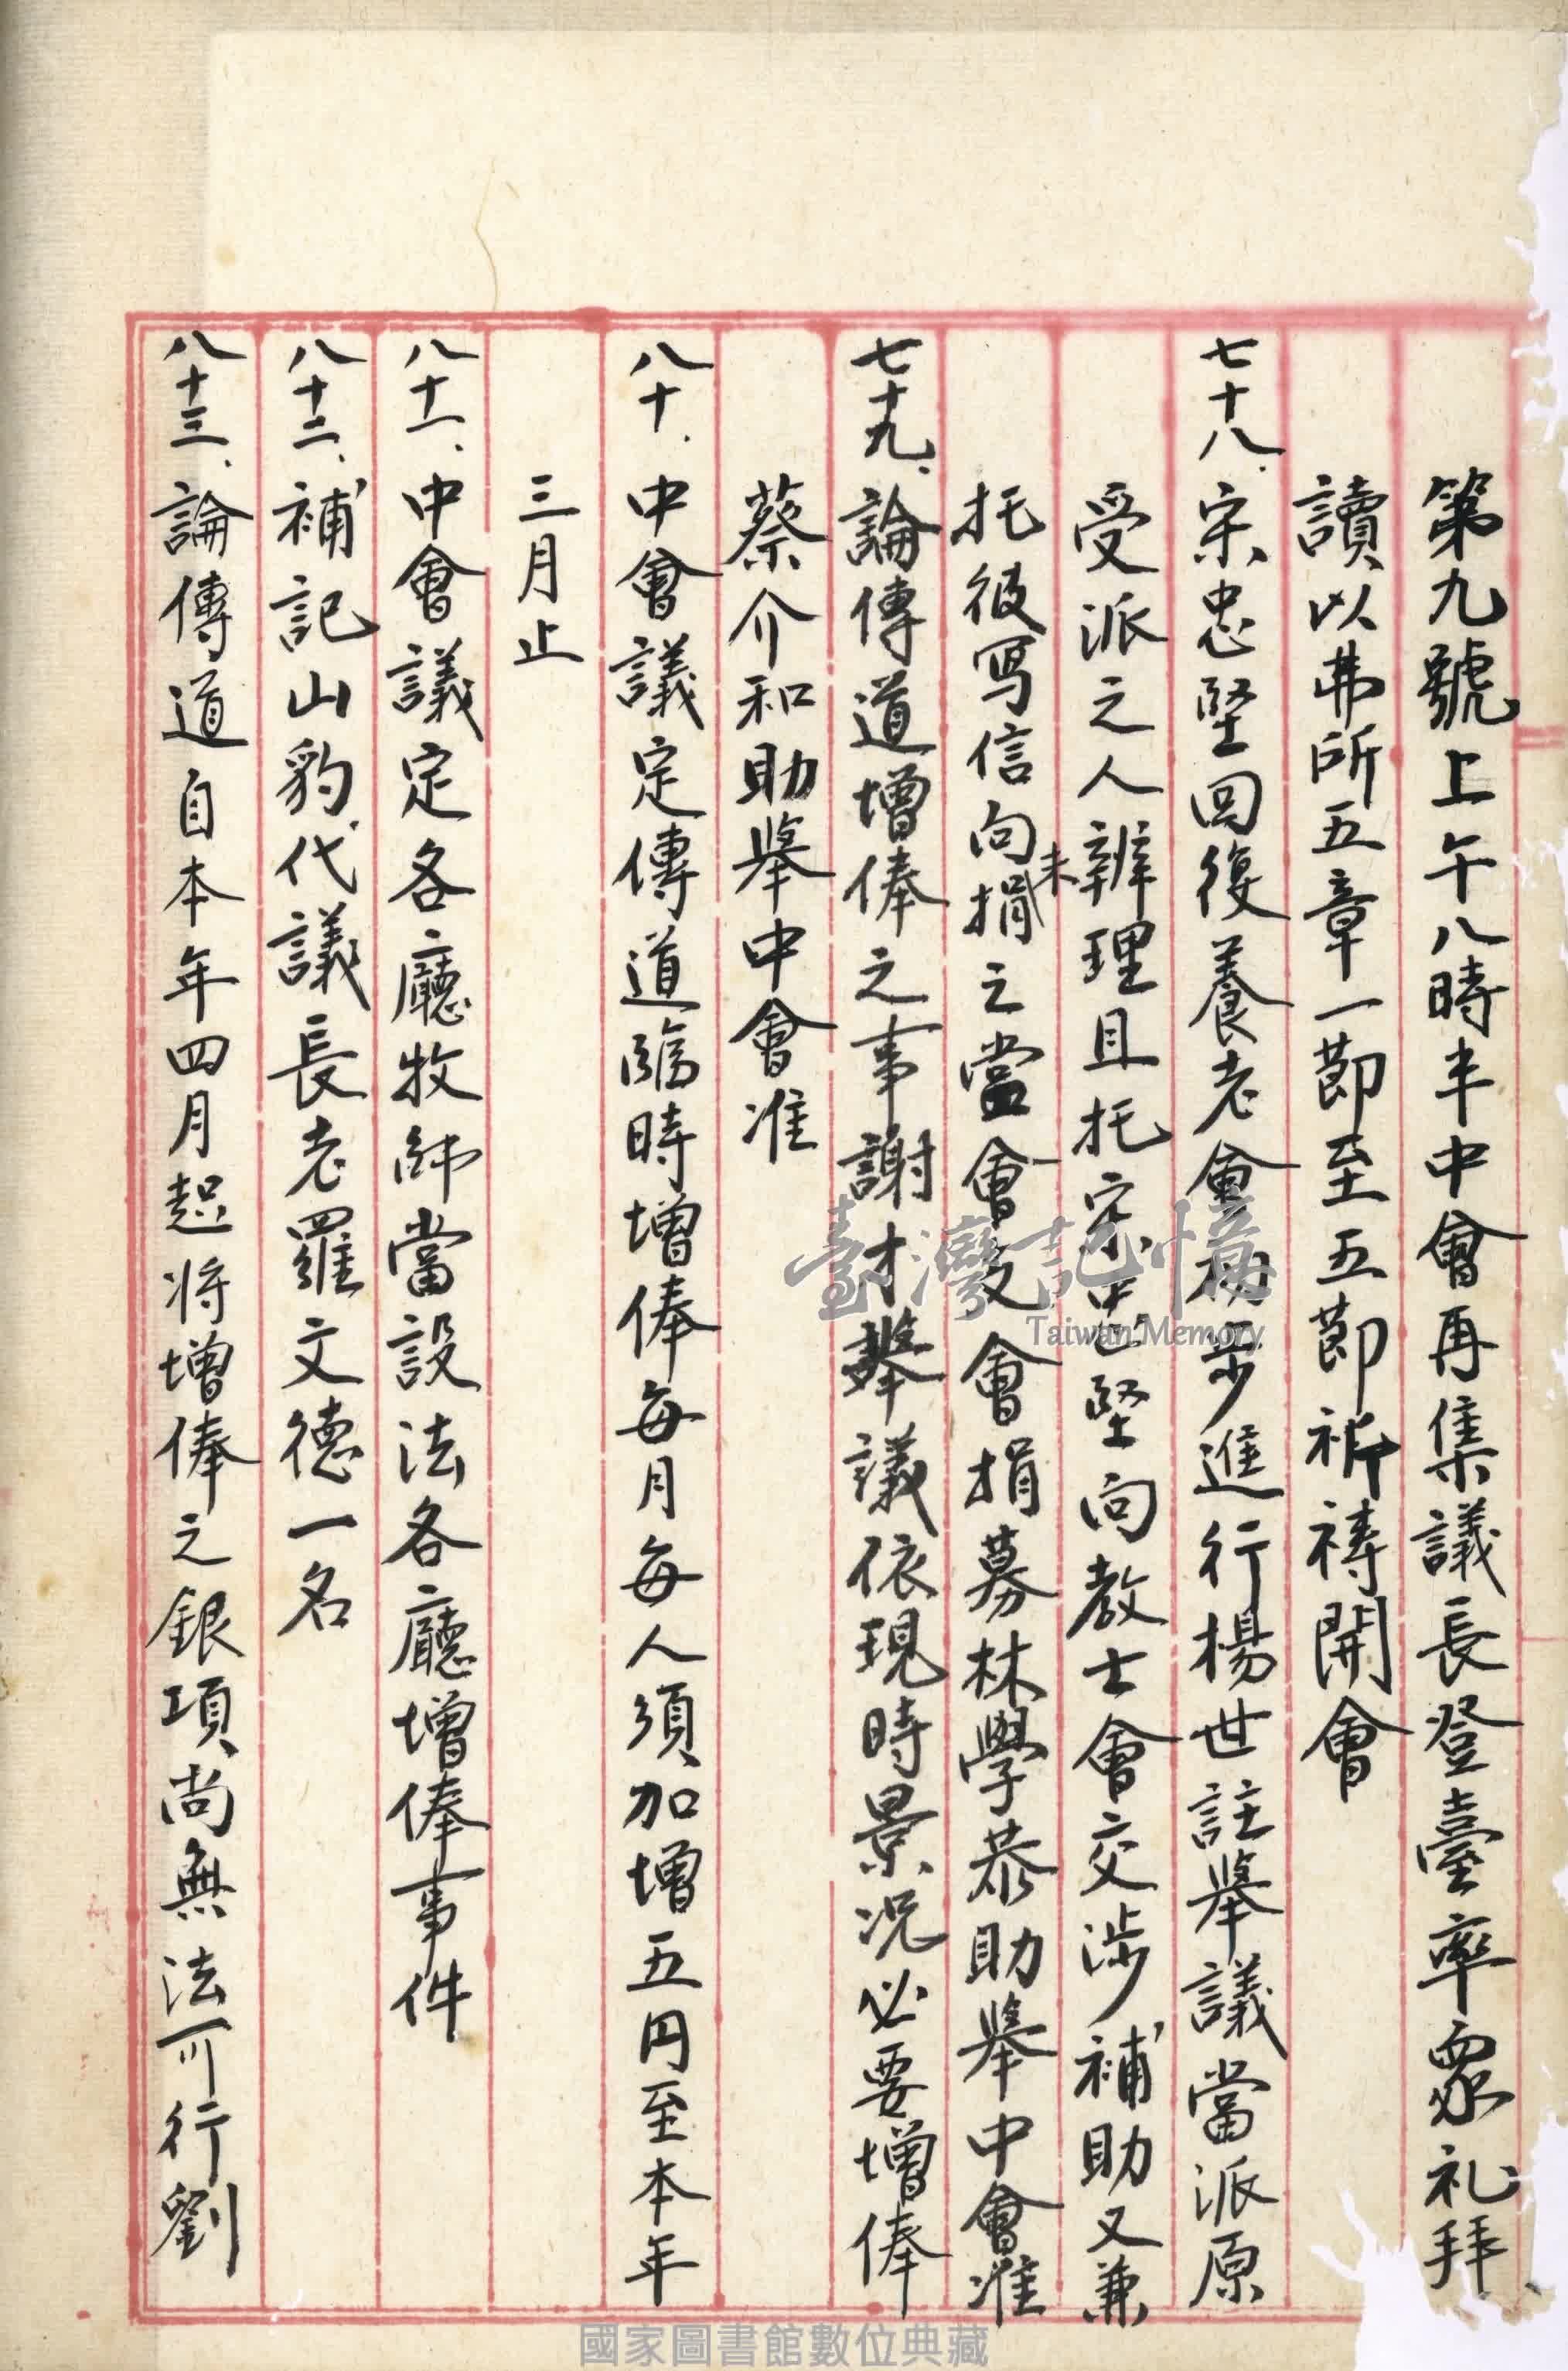 第九號上午八時半中會再集議長登臺率眾礼拜
讀以弗所五章一節至五節祈禱開會
七十八、宋忠堅回復養老會初步進行楊世註舉議當派原
受派之人辦理且托宋忠堅向教士會交涉補助又兼
托彼写信向未捐之堂會及會捐募林學恭助舉中會准
七十九、論傳道增俸之事謝才議依現時景况必要增俸
蔡介和助舉中會准
八十、中會議定傳道臨時增俸每月每人須加增五円至本年
三月止
八十一、中會議定各廳牧師當設法各廳增俸事件
八十二、補記山豹代議長老羅文德一名
八十三、論傳道自本年四月起将增俸之銀項尚無法可行劉
臺灣記憶
Taiwan Memory
國家圖書館數位典藏